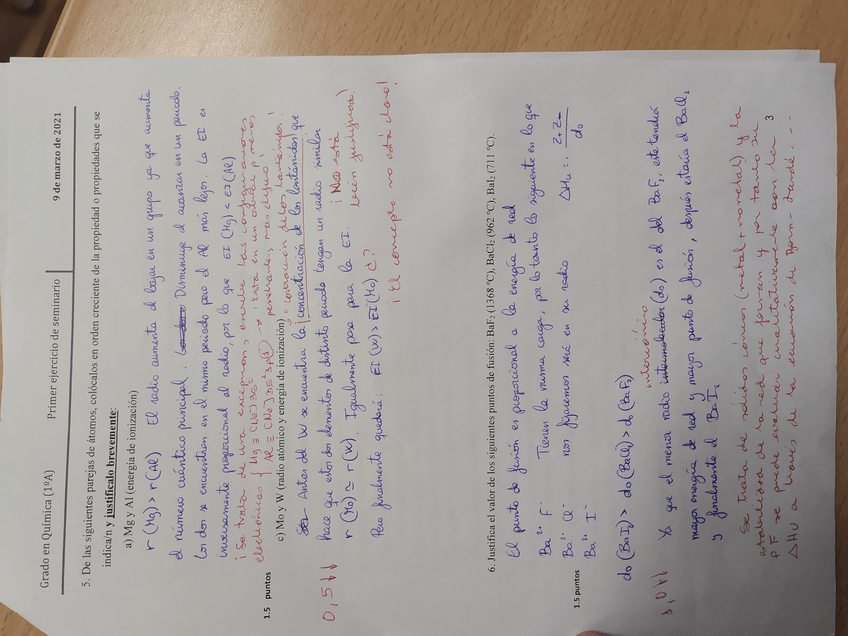 Grado en Química (1ºA) Primer ejercicio de seminario 9 de marzo de 2021
5. De las siguientes parejas de átomos, colócalos en orden creciente de la propiedad o propiedades que se
indica/n y justifícalo brevemente:
a) Mg y Al (energía de ionización)
r (Mg) > r (Al) El radio aumenta al bajar en un grupo ya que aumenta
el número cuántico principal. Disminuye al avanzar en un periodo.
Los dos se encuentran en el mismo periodo pero el Al más lejos. La EI es
inversamente proporcional al radio, por lo que EI (Mg) < EI (Al)
¡Se trata de una excepción, escribe las configuraciones
electrónicas Mg ≡ [Ne] 3s² ¡está en un orbital menos
Al ≡ [Ne] 3s² 3p① → penetrante, más externo!
1.5 puntos
c) Mo y W (radio atómico y energía de ionización)
"contracción de los lantánidos"
Antes del W se encuentra la concentración de los lantánidos que
hace que estos dos elementos de distinto periodo tengan un radio similar
0,5
r (Mo) ≃ r (W) Igualmente pasa para la EI. ¡No está
bien justificado!
Pero finalmente quedaría: EI (W) > EI (Mo) ¿?
¡El concepto no está claro!
6. Justifica el valor de los siguientes puntos de fusión: BaF₂ (1368 ºC), BaCl₂ (962 ºC), BaI₂ (711 ºC).
El punto de fusión es proporcional a la energía de red
Ba²⁺ F⁻ Tienen la misma carga, por lo tanto lo siguiente en lo que
Ba²⁺ Cl⁻ nos fijaremos será en su radio ΔHu = Z+ Z- / do
Ba²⁺ I⁻
1.5 puntos
do (BaI₂) > do (BaCl₂) > do (BaF₂)
interiónico
Ya que el menor radio internuclear (do) es el del BaF₂, este tendrá
mayor energía de red y mayor punto de fusión, después estaría el BaCl₂
y finalmente el BaI₂
Se trata de sólidos iónicos (metal + no metal) y la
estabilidad de la red que forman y por tanto su
PF se puede evaluar cualitativamente con la
ΔHu a través de la ecuación de Born-Landé....
3